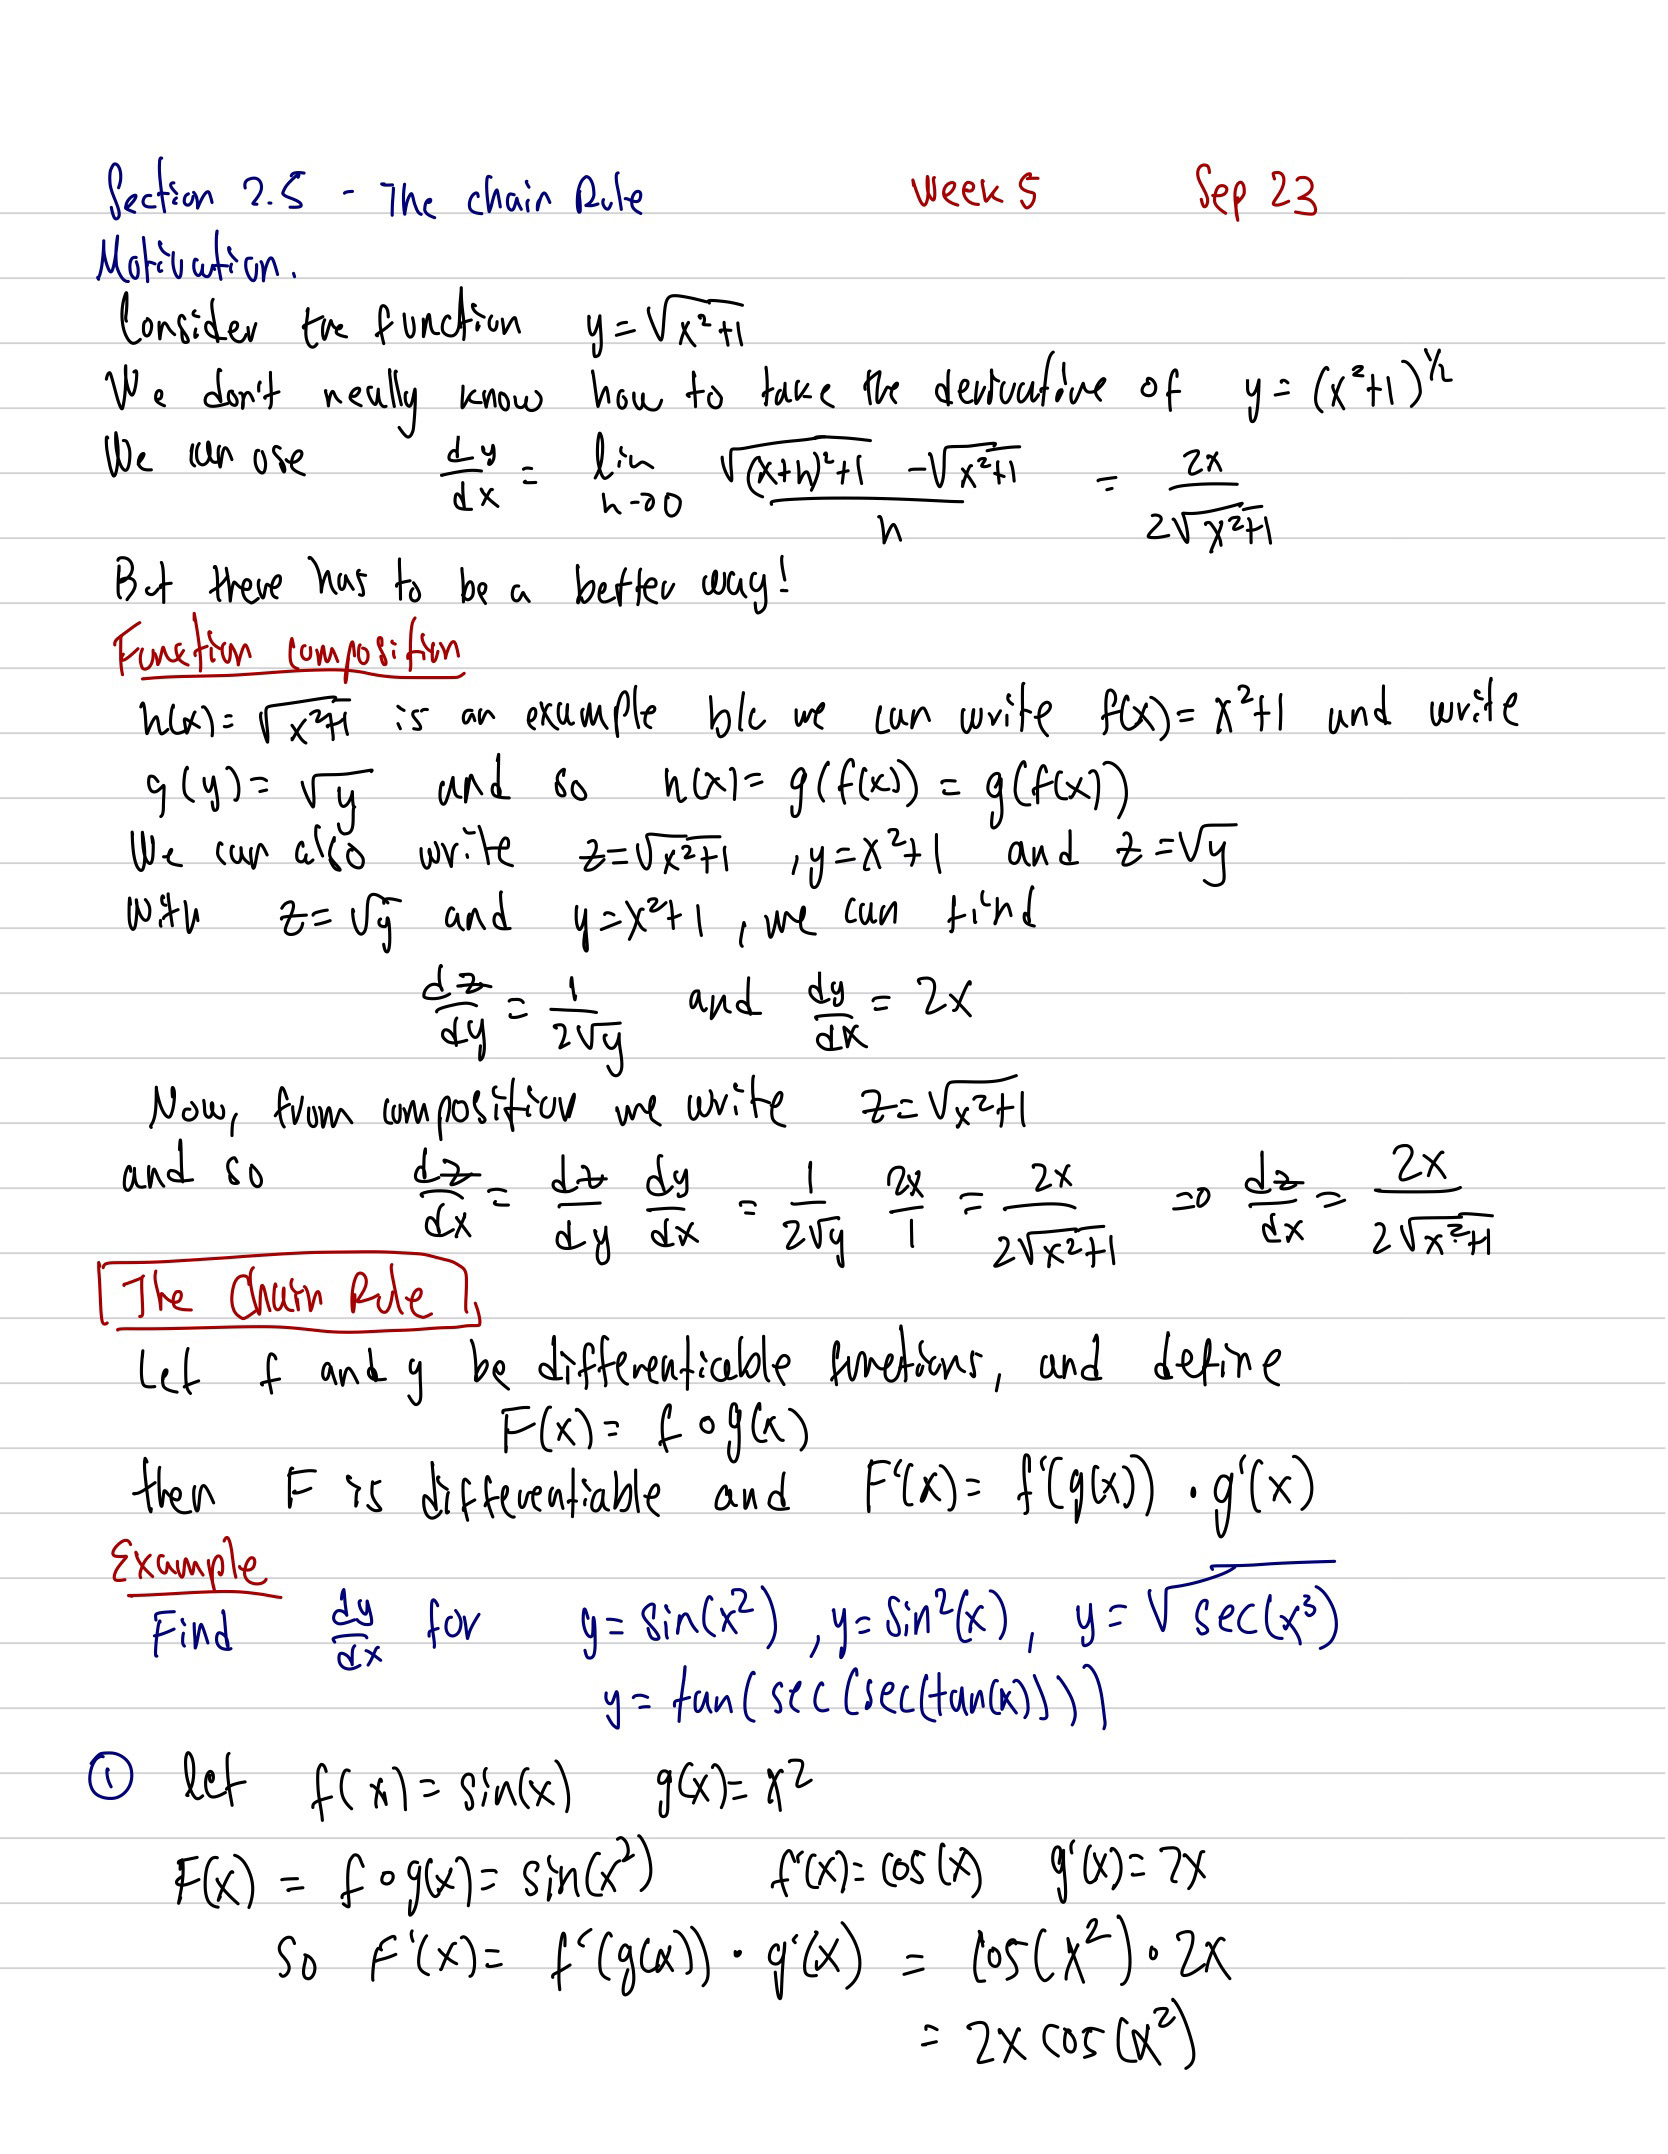 Section 2.5 - The chain Rule Week 5 Sep 23
Motivation.
Consider the function y = √(x²+1)
We don't really know how to take the derivative of y = (x²+1)^(1/2)
We can use dy/dx = lim h→0 (√((x+h)²+1) - √(x²+1))/h = 2x/(2√(x²+1))
But there has to be a better way!
Function composition
h(x) = √(x²+1) is an example b/c we can write f(x) = x²+1 and write
g(y) = √y and so h(x) = g(f(x)) = g(f(x))
We can also write z = √(x²+1) , y = x²+1 and z = √y
with z = √y and y = x²+1 , we can find
dz/dy = 1/(2√y) and dy/dx = 2x
Now, from composition we write z = √(x²+1)
and so dz/dx = dz/dy dy/dx = 1/(2√y) 2x/1 = 2x/(2√(x²+1)) ⇒ dz/dx = 2x/(2√(x²+1))
The Chain Rule
Let f and g be differenticable functions, and define
F(x) = f ∘ g(x)
then F is differentiable and F'(x) = f'(g(x)) · g'(x)
Example
Find dy/dx for y = sin(x²) , y = sin²(x) , y = √(sec(x³))
y = tan(sec(sec(tan(x))))
① let f(x) = sin(x) g(x) = x²
F(x) = f ∘ g(x) = sin(x²) f'(x) = cos(x) g'(x) = 2x
So F'(x) = f'(g(x)) · g'(x) = cos(x²) · 2x
= 2x cos(x²)